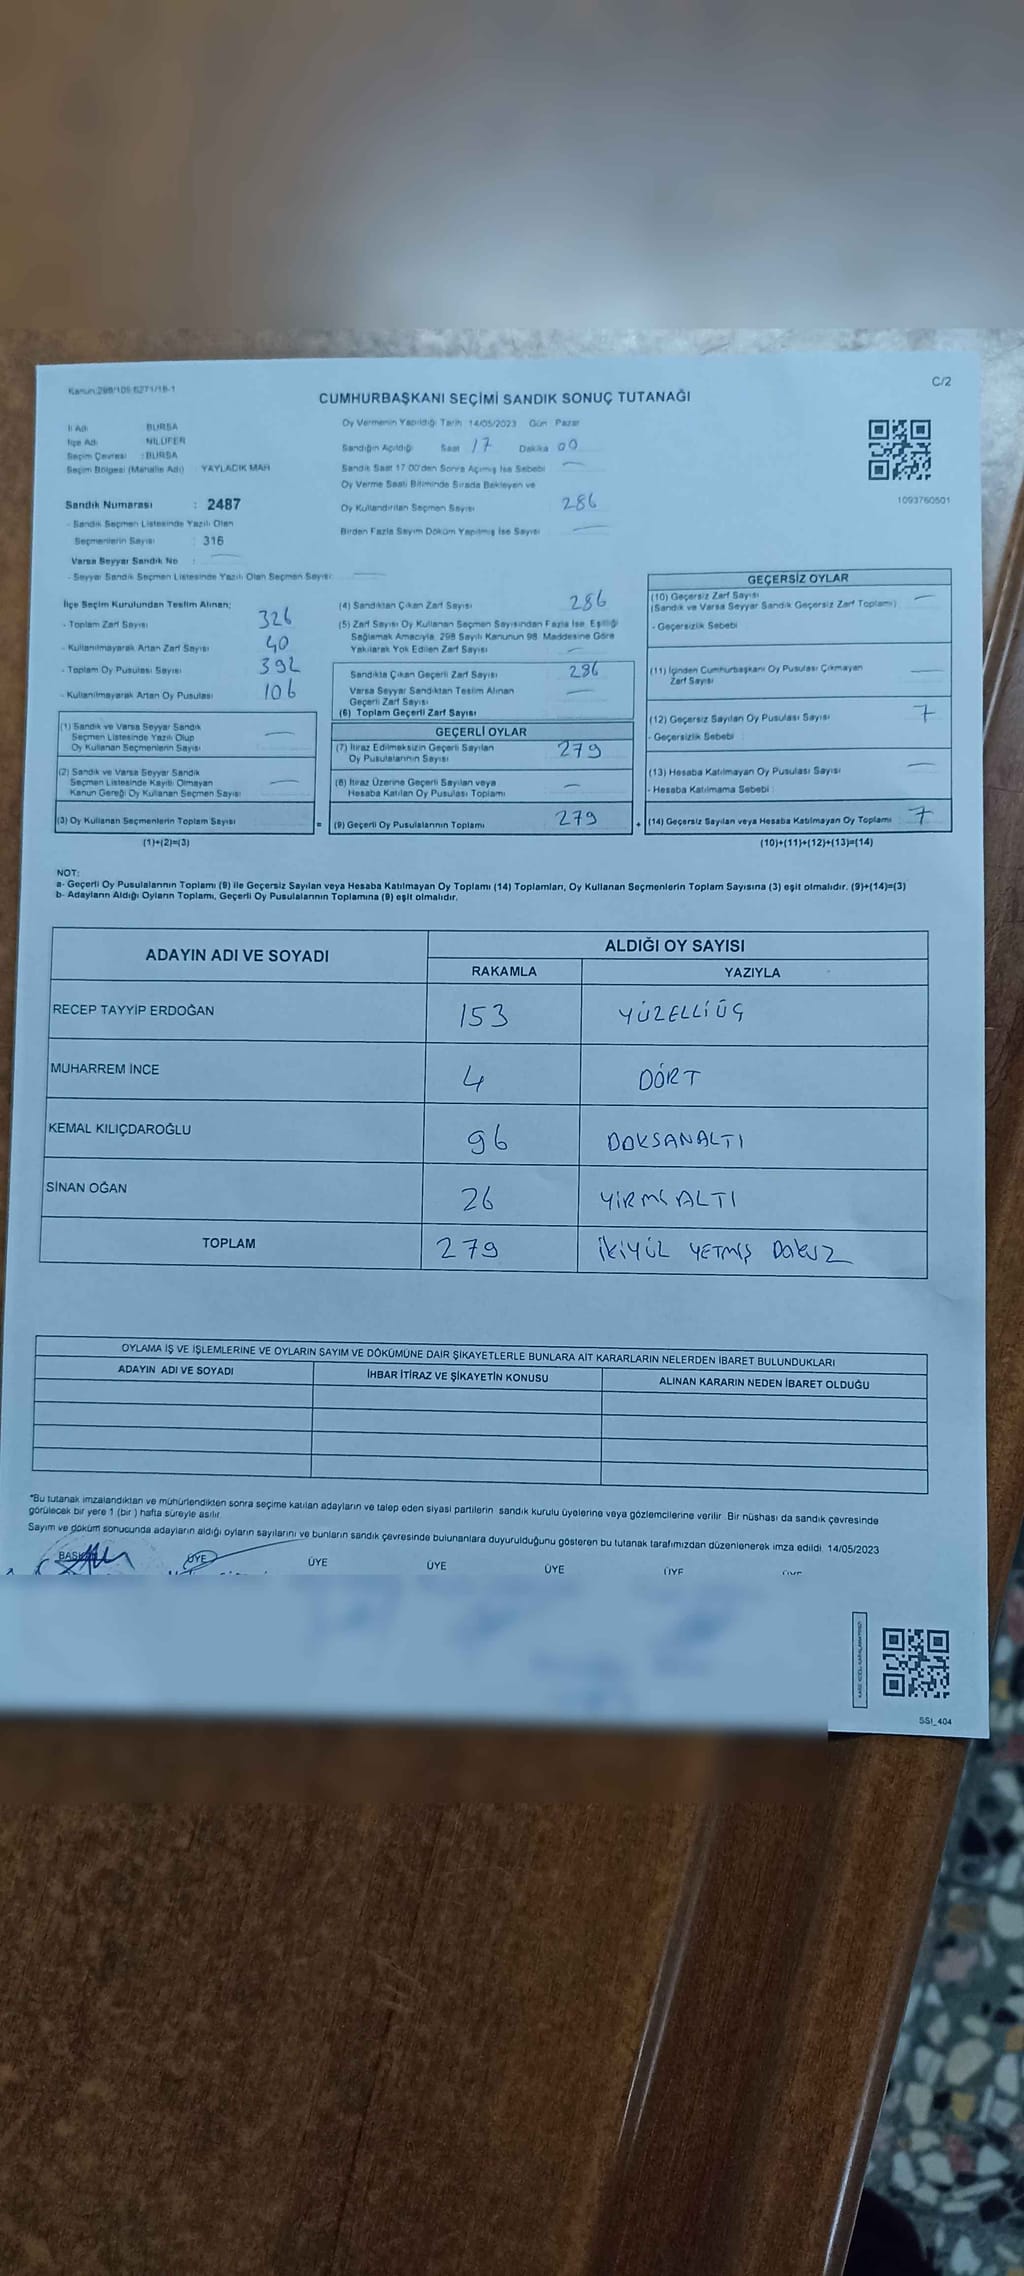 Kanun:298/105 6271/18-1
C/2
CUMHURBAŞKANI SEÇİMİ SANDIK SONUÇ TUTANAĞI
İl Adı BURSA
İlçe Adı NİLÜFER
Seçim Çevresi : BURSA
Seçim Bölgesi (Mahalle Adı) YAYLACIK MAH
Sandık Numarası : 2487
- Sandık Seçmen Listesinde Yazılı Olan
Seçmenlerin Sayısı 316
Varsa Seyyar Sandık No : —
- Seyyar Sandık Seçmen Listesinde Yazılı Olan Seçmen Sayısı —
Oy Vermenin Yapıldığı Tarih 14/05/2023 Gün Pazar
Sandığın Açıldığı Saat 17 Dakika 00
Sandık Saat 17 00'den Sonra Açılmış İse Sebebi —
Oy Verme Saati Bitiminde Sırada Bekleyen ve
Oy Kullandırılan Seçmen Sayısı 286
Birden Fazla Sayım Döküm Yapılmış İse Sayısı —
1093760501
İlçe Seçim Kurulundan Teslim Alınan;
- Toplam Zarf Sayısı 326
- Kullanılmayarak Artan Zarf Sayısı 40
- Toplam Oy Pusulası Sayısı 392
- Kullanılmayarak Artan Oy Pusulası 106
(1) Sandık ve Varsa Seyyar Sandık
Seçmen Listesinde Yazılı Olup
Oy Kullanan Seçmenlerin Sayısı —
(2) Sandık ve Varsa Seyyar Sandık
Seçmen Listesinde Kayıtlı Olmayan
Kanun Gereği Oy Kullanan Seçmen Sayısı —
(3) Oy Kullanan Seçmenlerin Toplam Sayısı =
(1)+(2)=(3)
(4) Sandıktan Çıkan Zarf Sayısı 286
(5) Zarf Sayısı Oy Kullanan Seçmen Sayısından Fazla İse, Eşitliği
Sağlamak Amacıyla, 298 Sayılı Kanunun 98. Maddesine Göre
Yakılarak Yok Edilen Zarf Sayısı —
Sandıkta Çıkan Geçerli Zarf Sayısı 286
Varsa Seyyar Sandıktan Teslim Alınan
Geçerli Zarf Sayısı —
(6) Toplam Geçerli Zarf Sayısı
GEÇERLİ OYLAR
(7) İtiraz Edilmeksizin Geçerli Sayılan
Oy Pusulalarının Sayısı 279
(8) İtiraz Üzerine Geçerli Sayılan veya
Hesaba Katılan Oy Pusulası Toplamı —
(9) Geçerli Oy Pusulalarının Toplamı 279 +
GEÇERSİZ OYLAR
(10) Geçersiz Zarf Sayısı —
(Sandık ve Varsa Seyyar Sandık Geçersiz Zarf Toplamı)
- Geçersizlik Sebebi
(11) İçinden Cumhurbaşkanı Oy Pusulası Çıkmayan
Zarf Sayısı —
(12) Geçersiz Sayılan Oy Pusulası Sayısı 7
- Geçersizlik Sebebi :
(13) Hesaba Katılmayan Oy Pusulası Sayısı —
- Hesaba Katılmama Sebebi :
(14) Geçersiz Sayılan veya Hesaba Katılmayan Oy Toplamı 7
(10)+(11)+(12)+(13)=(14)
NOT:
a- Geçerli Oy Pusulalarının Toplamı (9) ile Geçersiz Sayılan veya Hesaba Katılmayan Oy Toplamı (14) Toplamları, Oy Kullanan Seçmenlerin Toplam Sayısına (3) eşit olmalıdır. (9)+(14)=(3)
b- Adayların Aldığı Oyların Toplamı, Geçerli Oy Pusulalarının Toplamına (9) eşit olmalıdır.
ADAYIN ADI VE SOYADI ALDIĞI OY SAYISI
RAKAMLA YAZIYLA
RECEP TAYYİP ERDOĞAN 153 YÜZELLİÜÇ
MUHARREM İNCE 4 DÖRT
KEMAL KILIÇDAROĞLU 96 DOKSANALTI
SİNAN OĞAN 26 YİRMİ ALTI
TOPLAM 279 İKİYÜZ YETMİŞ DOKUZ
OYLAMA İŞ VE İŞLEMLERİNE VE OYLARIN SAYIM VE DÖKÜMÜNE DAİR ŞİKAYETLERLE BUNLARA AİT KARARLARIN NELERDEN İBARET BULUNDUKLARI
ADAYIN ADI VE SOYADI İHBAR İTİRAZ VE ŞİKAYETİN KONUSU ALINAN KARARIN NEDEN İBARET OLDUĞU
*Bu tutanak imzalandıktan ve mühürlendikten sonra seçime katılan adayların ve talep eden siyasi partilerin sandık kurulu üyelerine veya gözlemcilerine verilir. Bir nüshası da sandık çevresinde
görülecek bir yere 1 (bir ) hafta süreyle asılır.
Sayım ve döküm sonucunda adayların aldığı oyların sayılarını ve bunların sandık çevresinde bulunanlara duyurulduğunu gösteren bu tutanak tarafımızdan düzenlenerek imza edildi. 14/05/2023
ÜYE ÜYE ÜYE ÜYE ÜYE
SSI_404